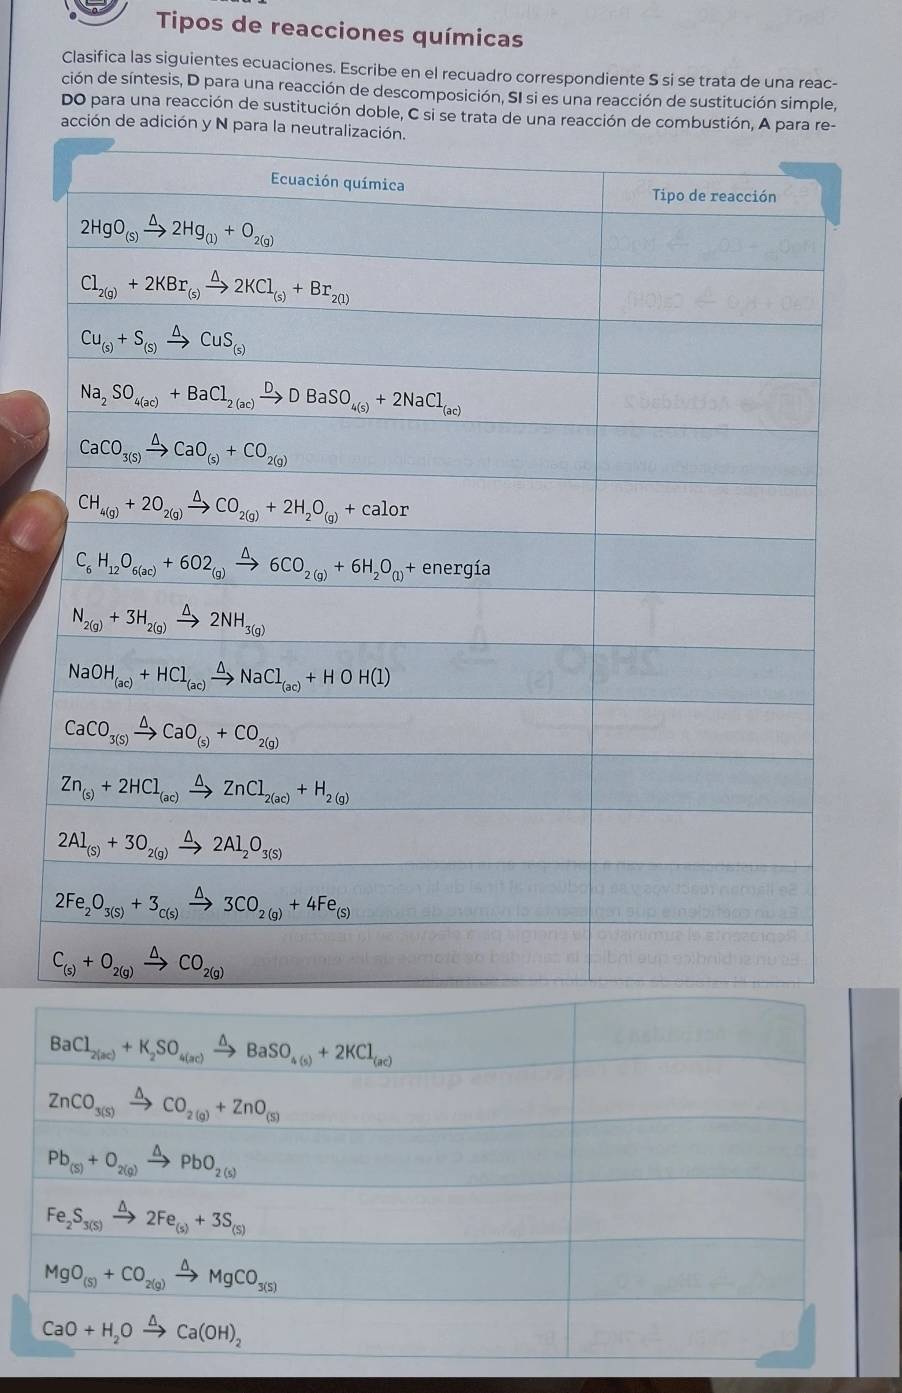 Tipos de reacciones químicas
Clasifica las siguientes ecuaciones. Escribe en el recuadro correspondiente S si se trata de una reac-
ción de síntesis, D para una reacción de descomposición, SI si es una reacción de sustitución simple,
DO para una reacción de sustitución doble, C si se trata de una reacción de combustión, A para re-
acción de adición y N para la neutralización.
Ecuación química Tipo de reacción
2HgO₍S₎ Δ→ 2Hg₍l₎ + O₂₍g₎
Cl₂₍g₎ + 2KBr₍s₎ Δ→ 2KCl₍s₎ + Br₂₍l₎
Cu₍s₎ + S₍S₎ Δ→ CuS₍s₎
Na₂ SO₄(ac) + BaCl₂ (ac) D→ D BaSO₄(s) + 2NaCl(ac)
CaCO₃(S) Δ→ CaO(s) + CO₂(g)
CH₄(g) + 2O₂(g) Δ→ CO₂(g) + 2H₂O(g) + calor
C₆ H₁₂O₆(ac) + 6O2(g) Δ→ 6CO₂ (g) + 6H₂O(l) + energía
N₂(g) + 3H₂(g) Δ→ 2NH₃(g)
NaOH(ac) + HCl(ac) Δ→ NaCl(ac) + H O H(l)
CaCO₃(S) Δ→ CaO(s) + CO₂(g)
Zn(s) + 2HCl(ac) Δ→ ZnCl₂(ac) + H₂ (g)
2Al(S) + 3O₂(g) Δ→ 2Al₂O₃(S)
2Fe₂O₃(S) + 3C(s) Δ→ 3CO₂ (g) + 4Fe(S)
C(s) + O₂(g) Δ→ CO₂(g)
BaCl₂(ac) + K₂SO₄(ac) Δ→ BaSO₄ (s) + 2KCl(ac)
ZnCO₃(S) Δ→ CO₂ (g) + ZnO(S)
Pb(S) + O₂(g) Δ→ PbO₂ (s)
Fe₂S₃(S) Δ→ 2Fe(s) + 3S(S)
MgO(S) + CO₂(g) Δ→ MgCO₃(S)
CaO + H₂O Δ→ Ca(OH)₂